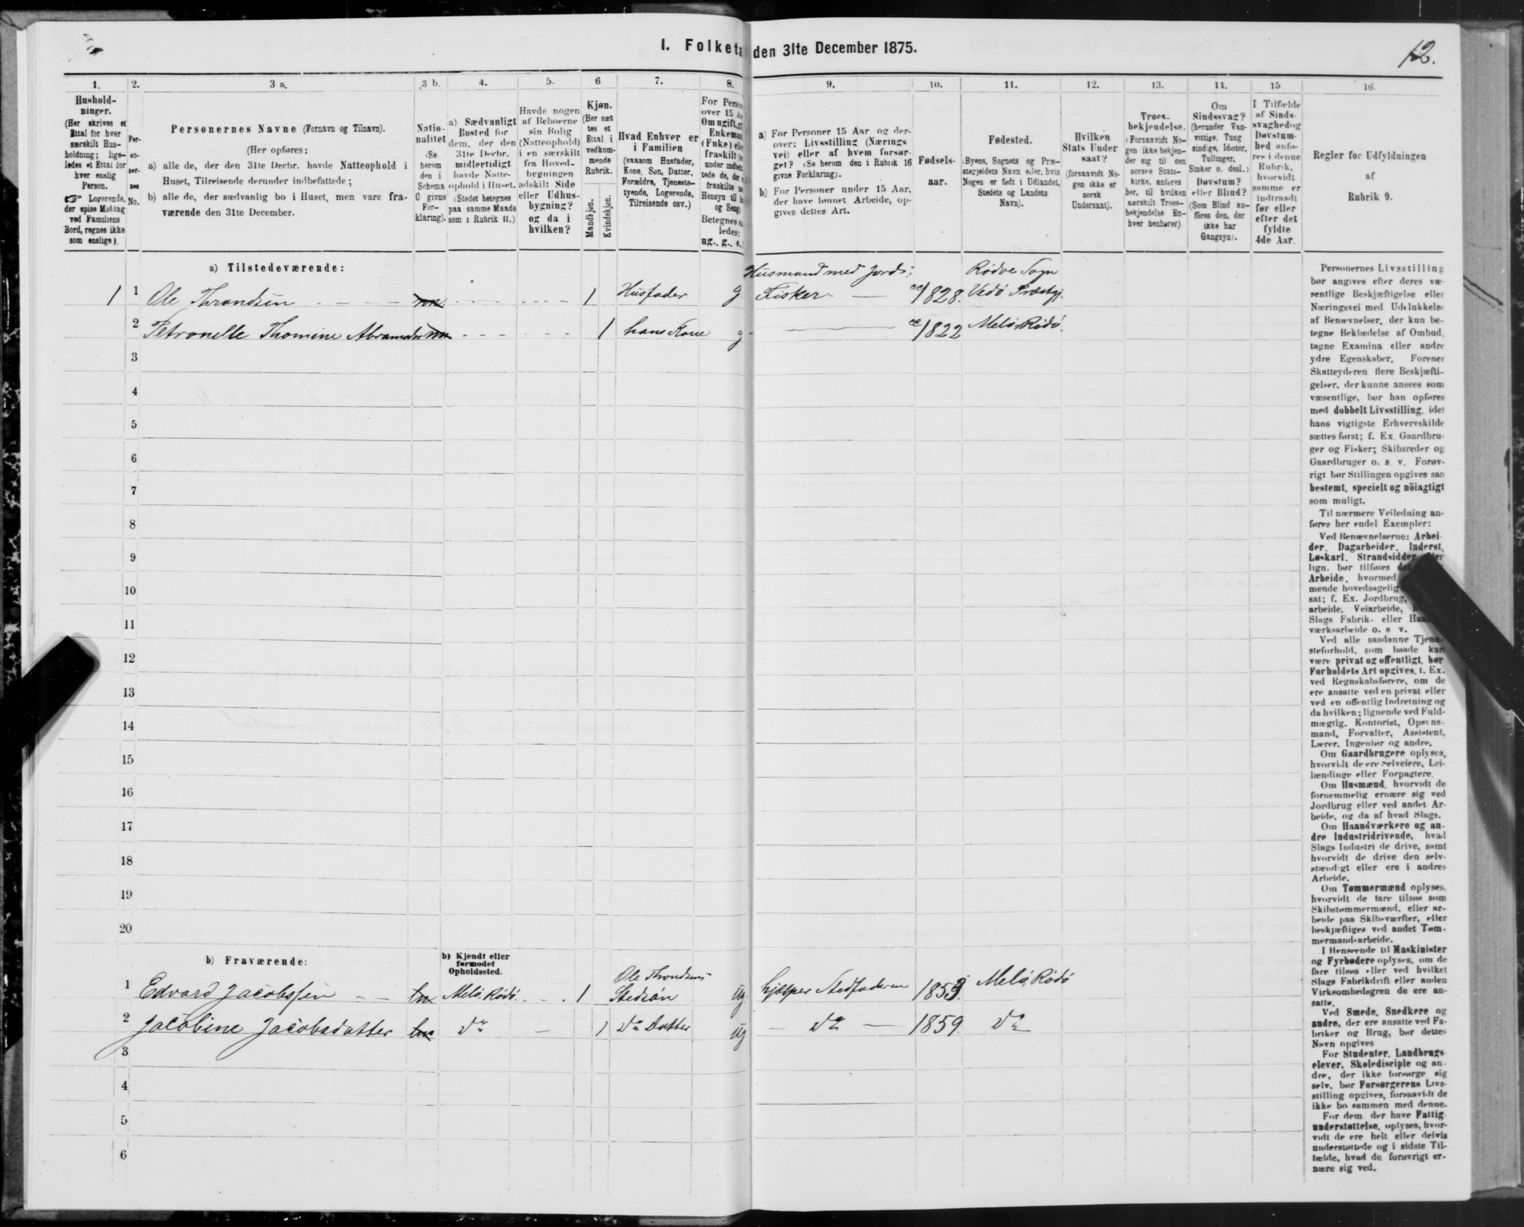 I. Folketæ
den 31te December 1875.
12.
1.
2.
3 a.
3 b.
4.
5.
6
7.
8.
9.
10.
11.
12.
13.
14.
15
16.
Hushold-
ninger.
(Her skrives et
Ettal for hver
særskilt Hus-
holdning; lige-
ledes et Ettal for
hver enslig
Person.
☞ Logerende,
der spise Middag
ved Familiens
Bord, regnes ikke
som enslige).
Per-
so-
ner-
nes
No.
Personernes Navne (Fornavn og Tilnavn).
(Her opføres:
a) alle de, der den 31te Decbr. havde Natteophold i
Huset, Tilreisende derunder indbefattede;
b) alle de, der sædvanlig bo i Huset, men vare fra-
værende den 31te December.
Natio-
nalitet
(Se
herom
den i
Schema
C givne
For-
klaring).
a) Sædvanligt
Bosted for
dem, der den
31te Decbr.
midlertidigt
havde Natte-
ophold i Huset.
(Stedet betegnes
paa samme Maade
som i Rubrik 11.)
Havde nogen
af Beboerne
sin Bolig
(Natteophold)
i en særskilt
fra Hoved-
bygningen
adskilt Side
eller Udhus-
bygning?
og da i
hvilken?
Kjøn.
(Her sæt-
tes et
Ettal i
vedkom-
mende
Rubrik.
Mandkjøn.
Kvindekjøn.
Hvad Enhver er
i Familien
(saasom Husfader,
Kone, Søn, Datter,
Forældre, Tjeneste-
tyende, Logerende,
Tilreisende osv.)
For Perso
over 15 A
Om ugift, g
Enkeman
(Enke) ell
fraskilt
under indbe
tede de, der
fraskilte
Hensyn til
og Seng
Betegnes s
ledes:
ug., g., e.
a) For Personer 15 Aar og der-
over: Livsstilling (Nærings-
vei) eller af hvem forsør-
get? (Se herom den i Rubrik 16
givne Forklaring).
b) For Personer under 15 Aar,
der have lønnet Arbeide, op-
gives dettes Art.
Fødsels-
aar.
Fødested.
(Byens, Sognets og Præ-
stegjeldets Navn eller, hvis
Nogen er født i Udlandet,
Stedets og Landets
Navn).
Hvilken
Stats Under
saat?
(forsaavidt No-
gen ikke er
norsk
Undersaat).
Troes-
bekjendelse.
(Forsaavidt No-
gen ikke bekjen-
der sig til den
norske Stats-
kirke, anføres
her, til hvilken
særskilt Troes-
bekjendelse En-
hver henhører)
Om
Sindssvag?
(herunder Van-
vittige, Tung
sindige, Idioter,
Tullinger,
Sinker o. desl.)
Døvstum?
eller Blind?
(Som Blind an-
føres den, der
ikke har
Gangsyn).
I Tilfælde
af Sinds-
svaghed og
Døvstum-
hed anfø-
res i denne
Rubrik,
hvorvidt
samme er
indtraadt
før eller
efter det
fyldte
4de Aar.
Regler for Udfyldningen
af
Rubrik 9.
a) Tilstedeværende:
Husmand med Jord;
Rødve Sogn
1
1
Ole Throndsen
nn
1
Husfader
g
Fisker
1828
Vedø Præstgj.
2
Petronelle Thomine Abramsdtr
nn
1
hans Kone
g
1822
Melø, Rødø
3
4
5
6
7
8
9
10
11
12
13
14
15
16
17
18
19
20
b) Fraværende:
b) Kjendt eller
formodet
Opholdssted.
Ole Throndsens
1
Edvard Jacobssen
Melø, Rødø
1
Stedsøn
ug
hjælper Stedfaderen
1853
Melø, Rødø
2
Jacobine Jacobsdatter
do
1
do Datter
ug
do
1859
do
3
4
5
6
Personernes Livsstilling
bør angives efter deres væ-
sentlige Beskjæftigelse eller
Næringsvei med Udelukkelse
af Benævnelser, der kun be-
tegne Beklædelse af Ombud,
tagne Examina eller andre
ydre Egenskaber. Forener
Skatteyderen flere Beskjæfti-
gelser, der kunne ansees som
væsentlige, bør han opføres
med dobbelt Livsstilling, idet
hans vigtigste Erhvervskilde
sættes først; f. Ex. Gaardbru-
ger og Fisker; Skibsreder og
Gaardbruger o. s. v. Forøv-
rigt bør Stillingen opgives saa
bestemt, specielt og nöiagtigt
som muligt.
Til nærmere Veiledning an-
føres her endel Exempler:
Ved Benævnelserne: Arbei-
der, Dagarbeider, Inderst,
Løskarl, Strandsidder eller
lign. bør tilføies det
Arbeide, hvormed
mende hovedsagelig
sat; f. Ex. Jordbrug,
arbeide, Veiarbeide,
Slags Fabrik- eller Haand-
værksarbeide o. s. v.
Ved alle saadanne Tjene-
steforhold, som baade kan
være privat og offentligt, bør
Forholdets Art opgives, t. Ex.
ved Regnskabsførere, om de
ere ansatte ved en privat eller
ved en offentlig Indretning og
da hvilken; lignende ved Fuld-
mægtig, Kontorist, Opsyns-
mand, Forvalter, Assistent,
Lærer, Ingeniør og andre.
Om Gaardbrugere oplyses,
hvorvidt de ere Selveiere, Lei-
lændinge eller Forpagtere.
Om Husmænd, hvorvidt de
fornemmelig ernære sig ved
Jordbrug eller ved andet Ar-
beide, og da af hvad Slags.
Om Haandværkere og an-
dre Industridrivende, hvad
Slags Industri de drive, samt
hvorvidt de drive den selv-
stændigt eller ere i andres
Arbeide.
Om Tømmermænd oplyses,
hvorvidt de fare tilsøs som
Skibstømmermænd, eller ar-
beide paa Skibsværfter, eller
beskjæftiges ved andet Tøm-
mermandsarbeide.
I Henseende til Maskinister
og Fyrbødere oplyses, om de
fare tilsøs eller ved hvilket
Slags Fabrikdrift eller anden
Virksomhedsgren de ere an-
satte.
Ved Smede, Snedkere og
andre, der ere ansatte ved Fa-
briker og Brug, bør dettes
Navn opgives
For Studenter, Landbrugs-
elever, Skoledisciple og an-
dre, der ikke forsørge sig
selv, bør Forsørgerens Livs-
stilling opgives, forsaavidt de
ikke bo sammen med denne.
For dem, der have Fattig-
understøttelse, oplyses, hvor-
vidt de ere helt eller delvis
understøttede og i sidste Til-
fælde, hvad de forøvrigt er-
nære sig ved.